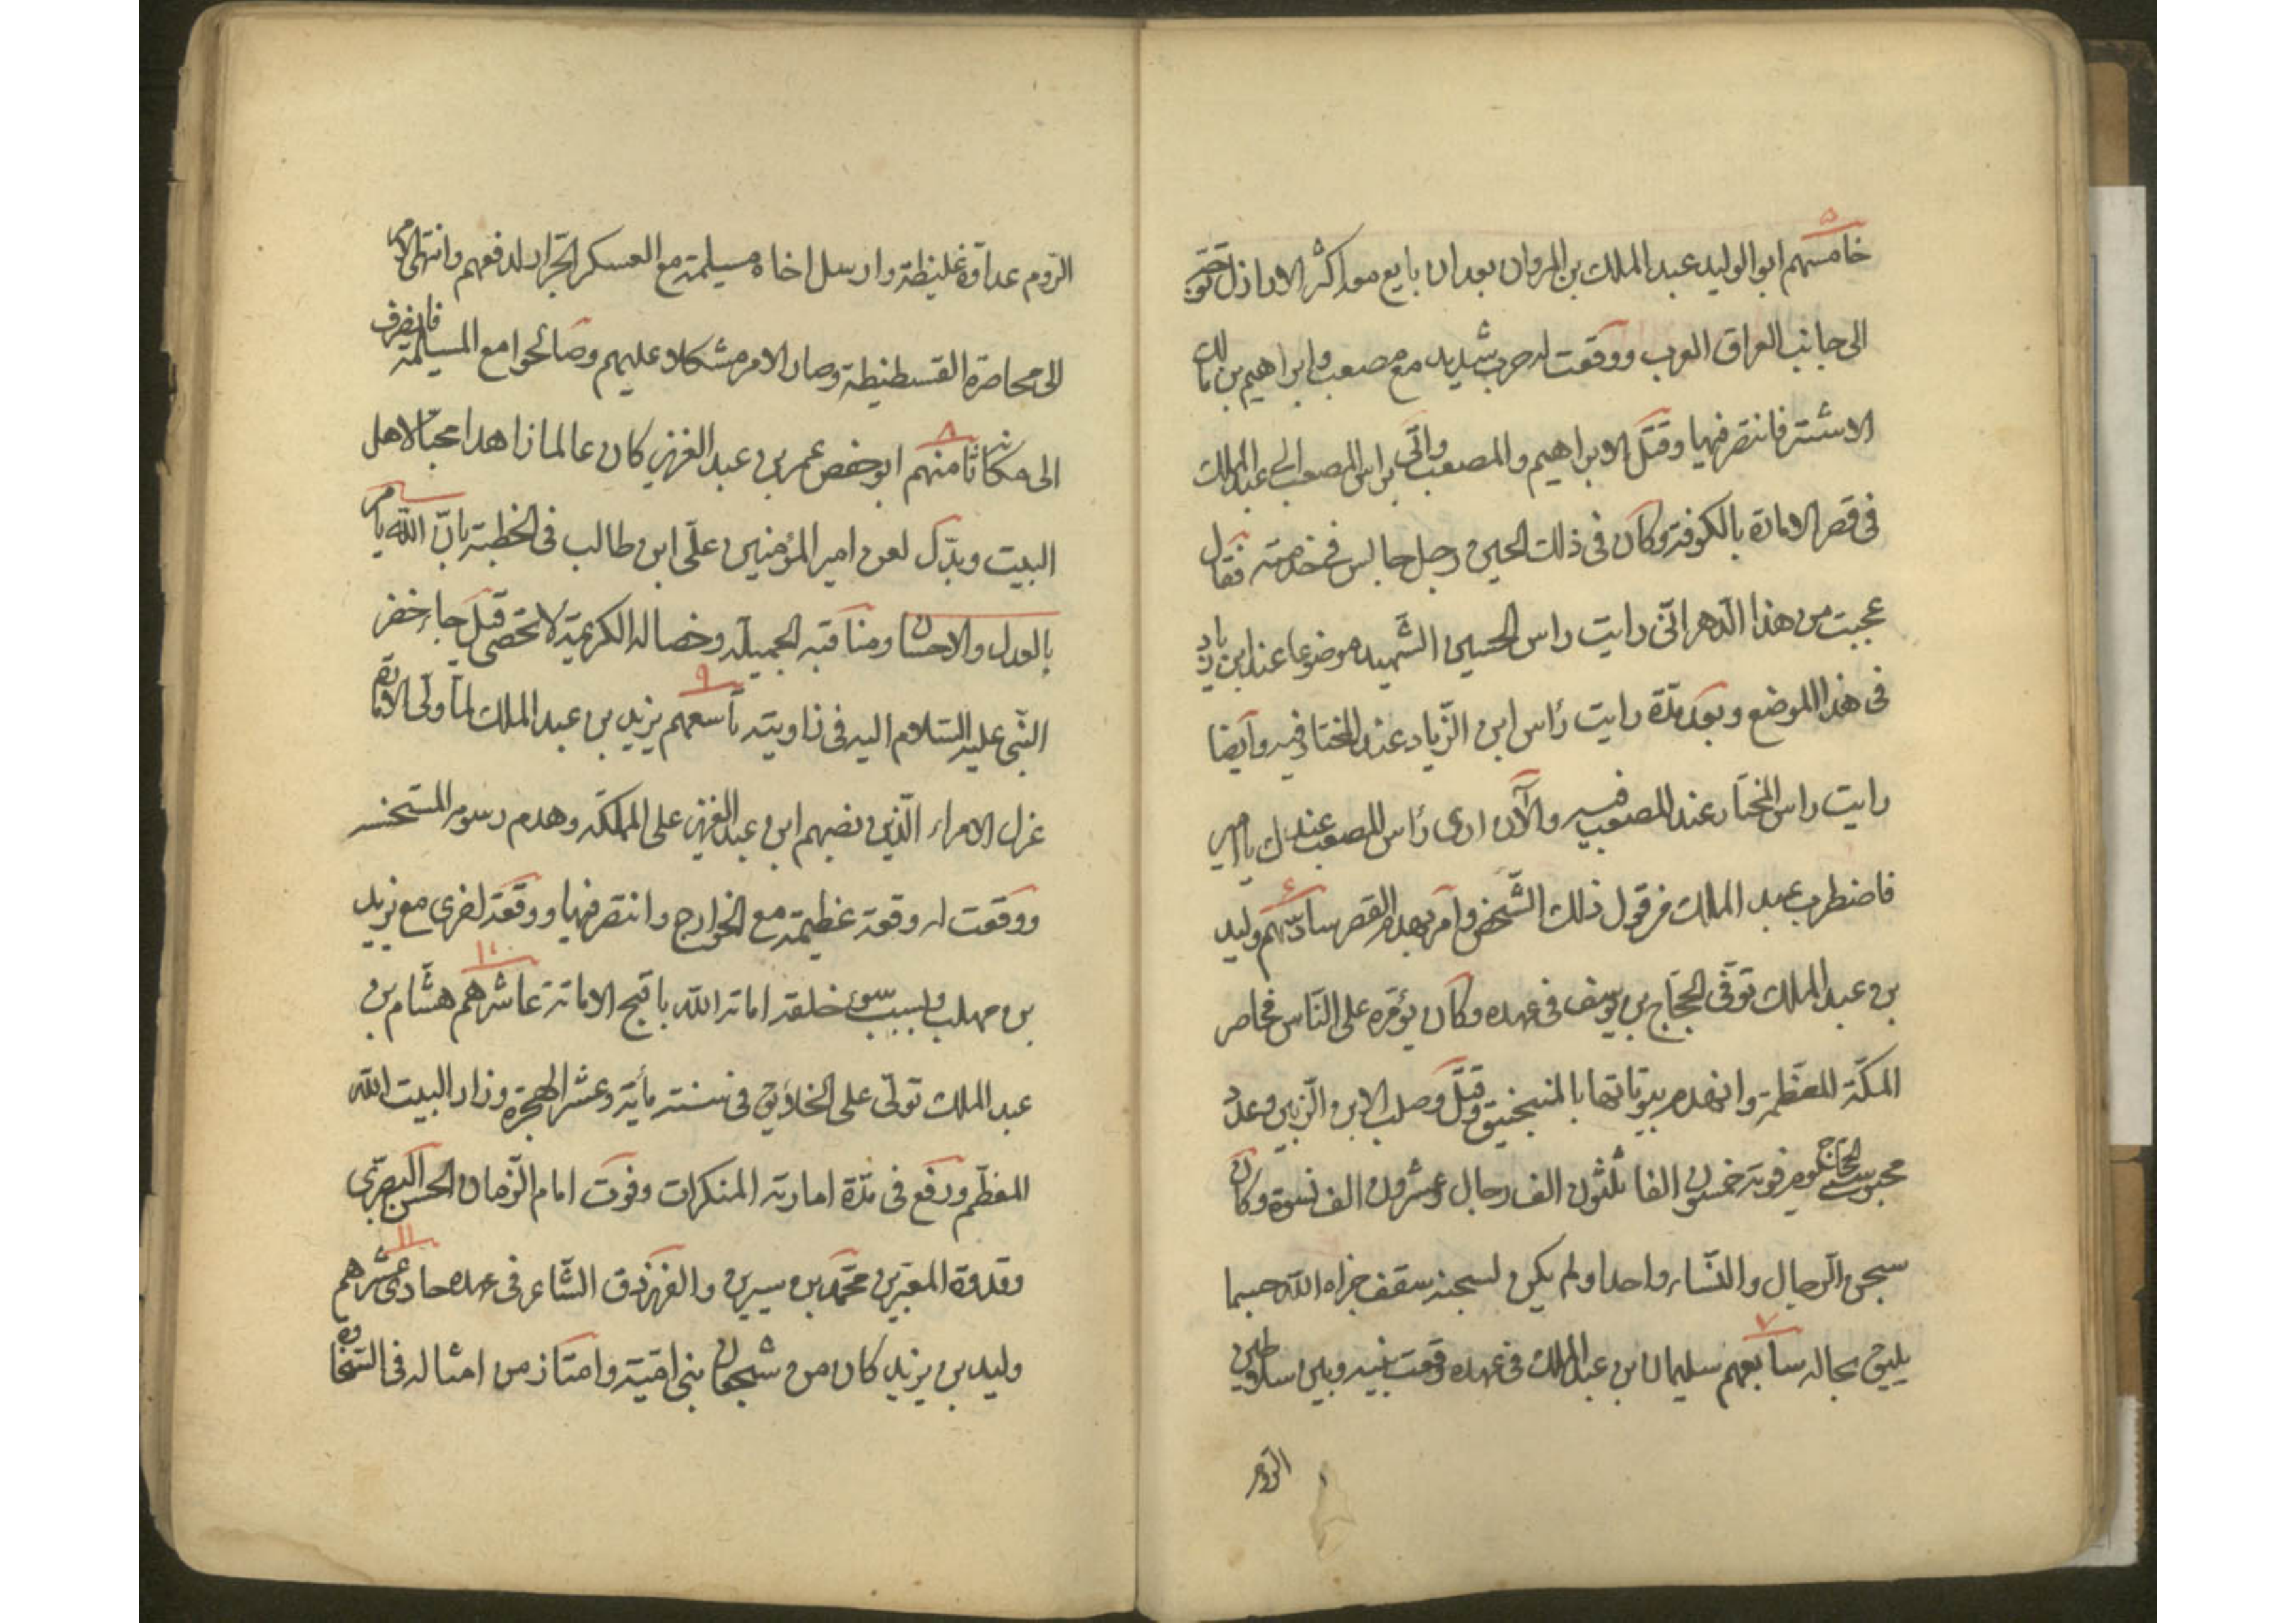 خامسهم ابو الوليد عبد الملك بن المروان بعد ان بايع معه اكثر الاراذل توجّه
الى جانب العراق العرب ووقعت له حرب شديد مع مصعب وابراهيم بن مالك
الاشتر فانتصر فيها وقتل الابراهيم والمصعب واتى براس المصعب الى عبد الملك
فى قصر الامارة بالكوفة وكان فى ذلك الحين رجل جالس فى خدمته فقال
عجبت من هذا الدهر انّى رايت راس الحسين الشّهيد موضوعا عند ابن زياد
فى هذا الموضع وبعد مدّة رايت رأس ابن الزّياد عند المختار فيه وايضا
رايت راس المختار عند المصعب فيه والآن ارى رأس المصعب عندك يا امير
فاضطرب عبد الملك من قول ذلك الشّخص وامر بهدم القصر سادسهم وليد
بن عبد الملك توفّى الحجّاج بن يوسف فى عهده وكان يؤمّره على النّاس فحاصر
المكّة المعظّمة وانهدم بيوتاتها بالمنجنيق وقتل وصلب الابن الزّبير وعدد
محبوسى الحجّاج يوم فوته خمسون الفا ثلثون الف رجال وعشرون الف نسوة وكان
سجن الرجال والنّساء واحدا ولم يكن لسجنه سقف جزاه الله حسبما
يليق بحاله سابعهم سليمان بن عبد الملك فى عهده وقعت بينه وبين سلاطين
الروم
الرّوم عداوة غليظة وارسل اخاه مسيلمة مع العسكر الجرّار لدفعهم وانتهى الامر
الى محاصرة القسطنطة وصار الامر مشكلا عليهم وصالحوا مع المسيلمة فانصرف
الى مكانه ثامنهم ابو حفص عمر بن عبد العزيز كان عالما زاهدا محبّا لاهل
البيت وبدّل لعن امير المؤمنين علّى ابن طالب فى الخطبة بانّ الله يامر
بالعدل والاحسان ومناقبه الجميلة وخصاله الكريمة لا تحصى قيل جاء خضر
النّبى عليه السّلام اليه فى زاويته تاسعهم يزيد بن عبد الملك لمّا ولّى الامارة
عزل الامراء الّذين نصبهم ابن عبد العزيز على المملكة وهدم رسومه المستحسنة
ووقعت له وقعة عظيمة مع الخوارج وانتصر فيها ووقعة اخرى مع يزيد
بن مهلب وبسبب سوء خلقه اماته الله باقبح الاماتة عاشرهم هشّام بن
عبد الملك تولّى على الخلايق فى سنة مأية وعشر الهجرة وزار البيت الله
المعظّم ورفع فى مدّة امارته المنكرات وفوت امام الزّمان الحسن البصرّى
وقدوة المعبّرين محمّد بن سيرين والفرزدق الشّاعر فى عهده حادى عشرهم
وليد بن يزيد كان من شجعان بنى اميّة وامتاز من امثاله فى السّخاوة